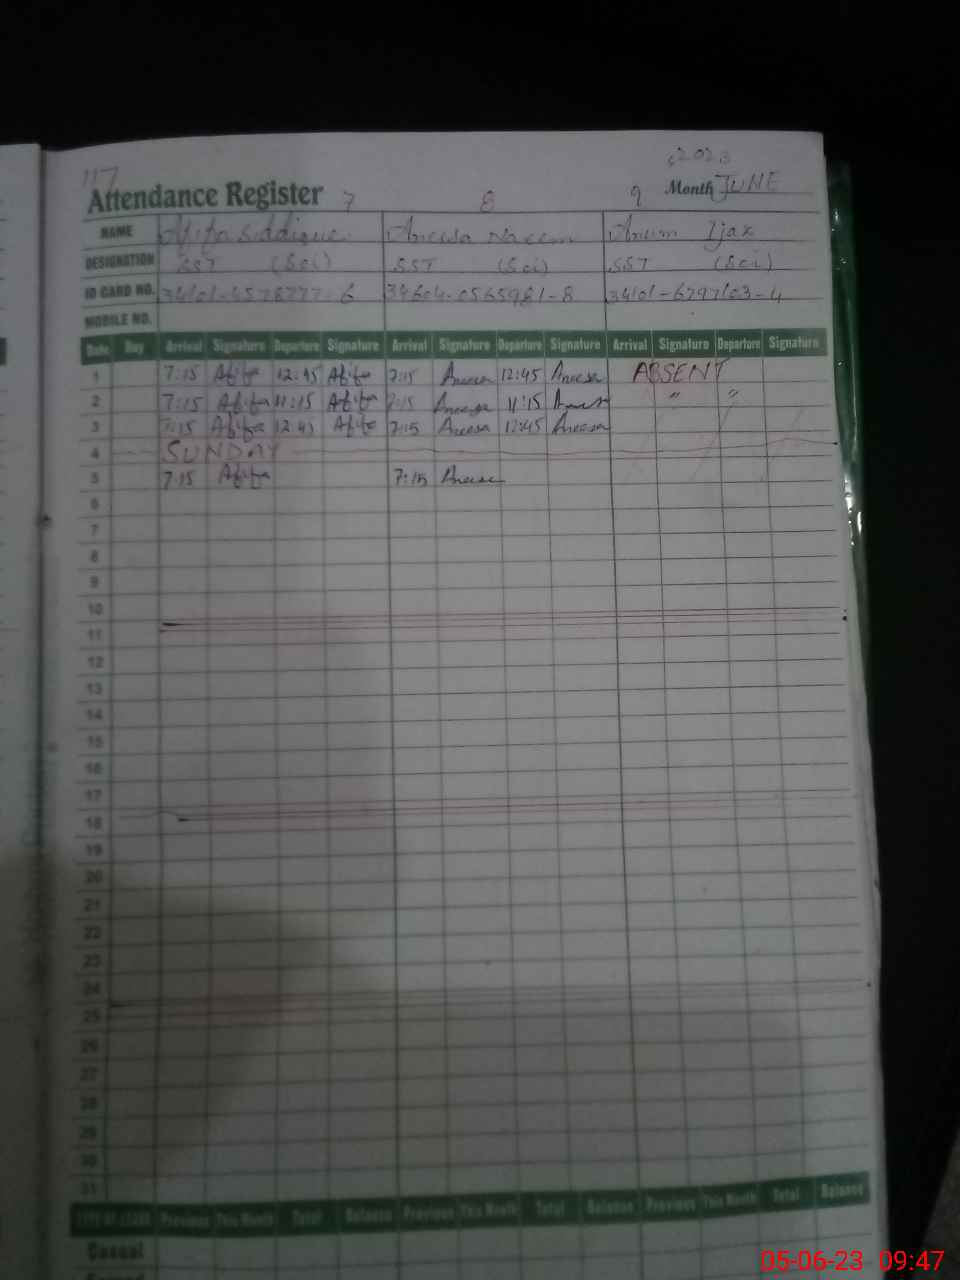 117
2023
Attendance Register 7 8 9 Month JUNE
NAME Afifa Siddique Aneesa Naeem Anum Ijaz
DESIGNATION SST (Sci) SST (Sci) SST (Sci)
ID CARD NO. 34101-4578777-6 34604-0565981-8 34101-6797103-4
MOBILE NO.
Date Day Arrival Signature Departure Signature Arrival Signature Departure Signature Arrival Signature Departure Signature
1 7:15 Afifa 12:45 Afifa 7:15 Aneesa 12:45 Aneesa ABSENT
2 7:15 Afifa 11:15 Afifa 7:15 Aneesa 11:15 Aneesa " "
3 7:15 Afifa 12:45 Afifa 7:15 Aneesa 12:45 Aneesa
4 SUNDAY
5 7:15 Afifa 7:15 Aneesa
6
7
8
9
10
11
12
13
14
15
16
17
18
19
20
21
22
23
24
25
26
27
28
29
30
31
TYPE OF LEAVE Previous This Month Total Balance Previous This Month Total Balance Previous This Month Total Balance
Casual
05-06-23 09:47